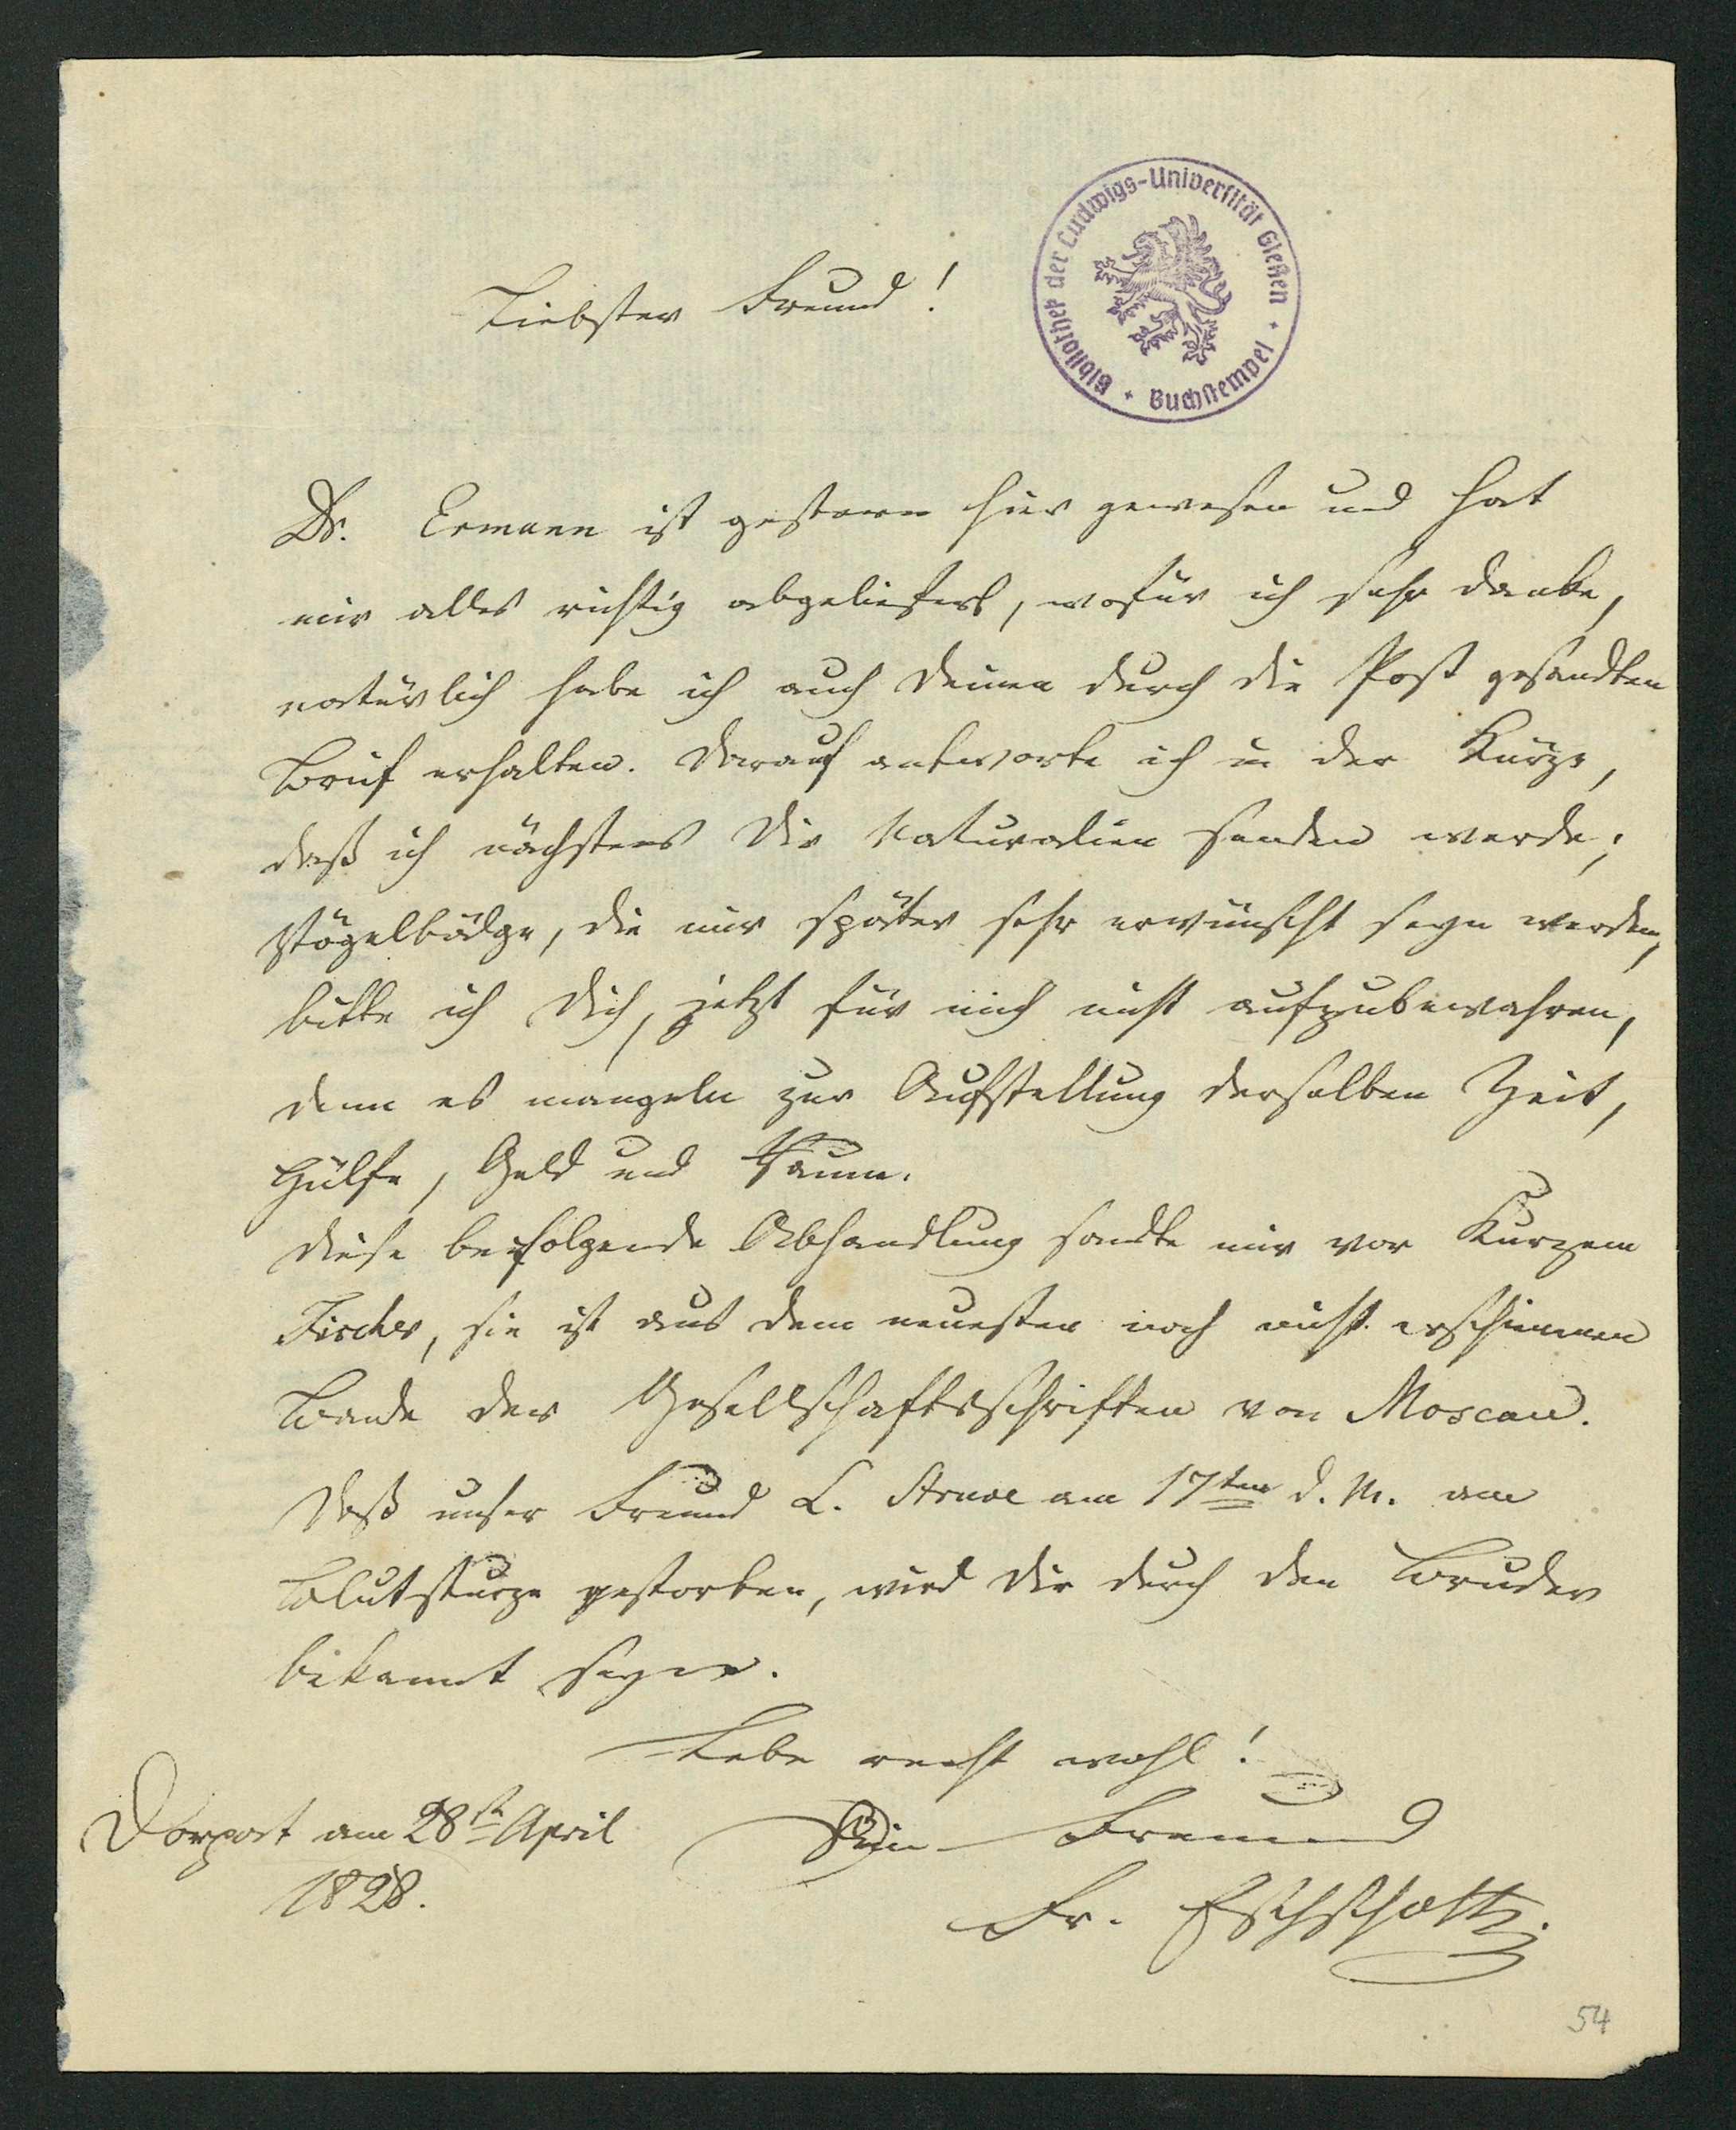 Bibliothek der Ludwigs-Universität Gießen + Buchstempel +
Liebster Freund!
Dr. Ermann ist gestern hier gewesen und hat
mir alles richtig abgeliefert, wofür ich sehr danke,
natürlich habe ich auch Deinen durch die Post gesandten
Brief erhalten. Darauf antworte ich in der Kürze,
daß ich nächstens Dir Naturalien senden werde;
Vögelbälge, die mir später sehr erwünscht seyn werden,
bitte ich Dich, jetzt für mich nicht aufzubewahren,
denn es mangeln zur Aufstellung derselben Zeit,
Hülfe, Geld und Raum.
Diese beifolgende Abhandlung sandte mir vor Kurzem
Fischer, sie ist aus dem neuesten noch nicht erschienenen
Bande der Gesellschaftsschriften von Moscau.
Daß unser Freund L. Struve am 17ten d. M. am
Blutsturze gestorben, wird Dir durch den Bruder
bekannt seyn.
Lebe recht wohl!
Dorpat am 28st April
1828.
Dein Freund
Fr. Eschscholtz.
54